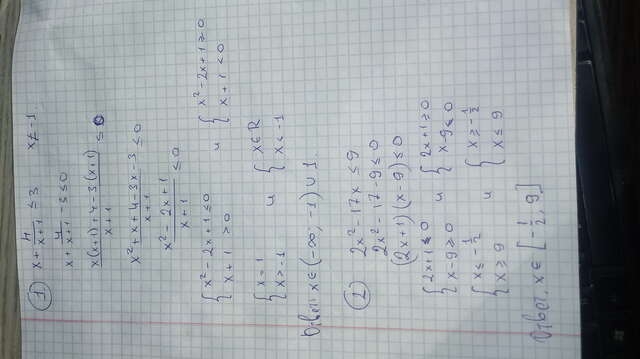 ① x + 4/(x+1) ≤ 3   x ≠ -1.
x + 4/(x+1) - 3 ≤ 0
(x(x+1) + 4 - 3(x+1))/(x+1) ≤ 0
(x² + x + 4 - 3x - 3)/(x+1) ≤ 0
(x² - 2x + 1)/(x+1) ≤ 0
{ x² - 2x + 1 ≤ 0   и   { x² - 2x + 1 ≥ 0
x + 1 > 0   x + 1 < 0
{ x = 1   и   { x ∈ R
x > -1   x < -1
Ответ: x ∈ (-∞; -1) ∪ 1.
② 2x² - 17x ≤ 9
2x² - 17 - 9 ≤ 0
(2x+1)(x-9) ≤ 0
{ 2x+1 ≤ 0   и   { 2x+1 ≥ 0
x-9 ≥ 0   x-9 ≤ 0
{ x ≤ -1/2   и   { x ≥ -1/2
x ≥ 9   x ≤ 9
Ответ. x ∈ [-1/2, 9]